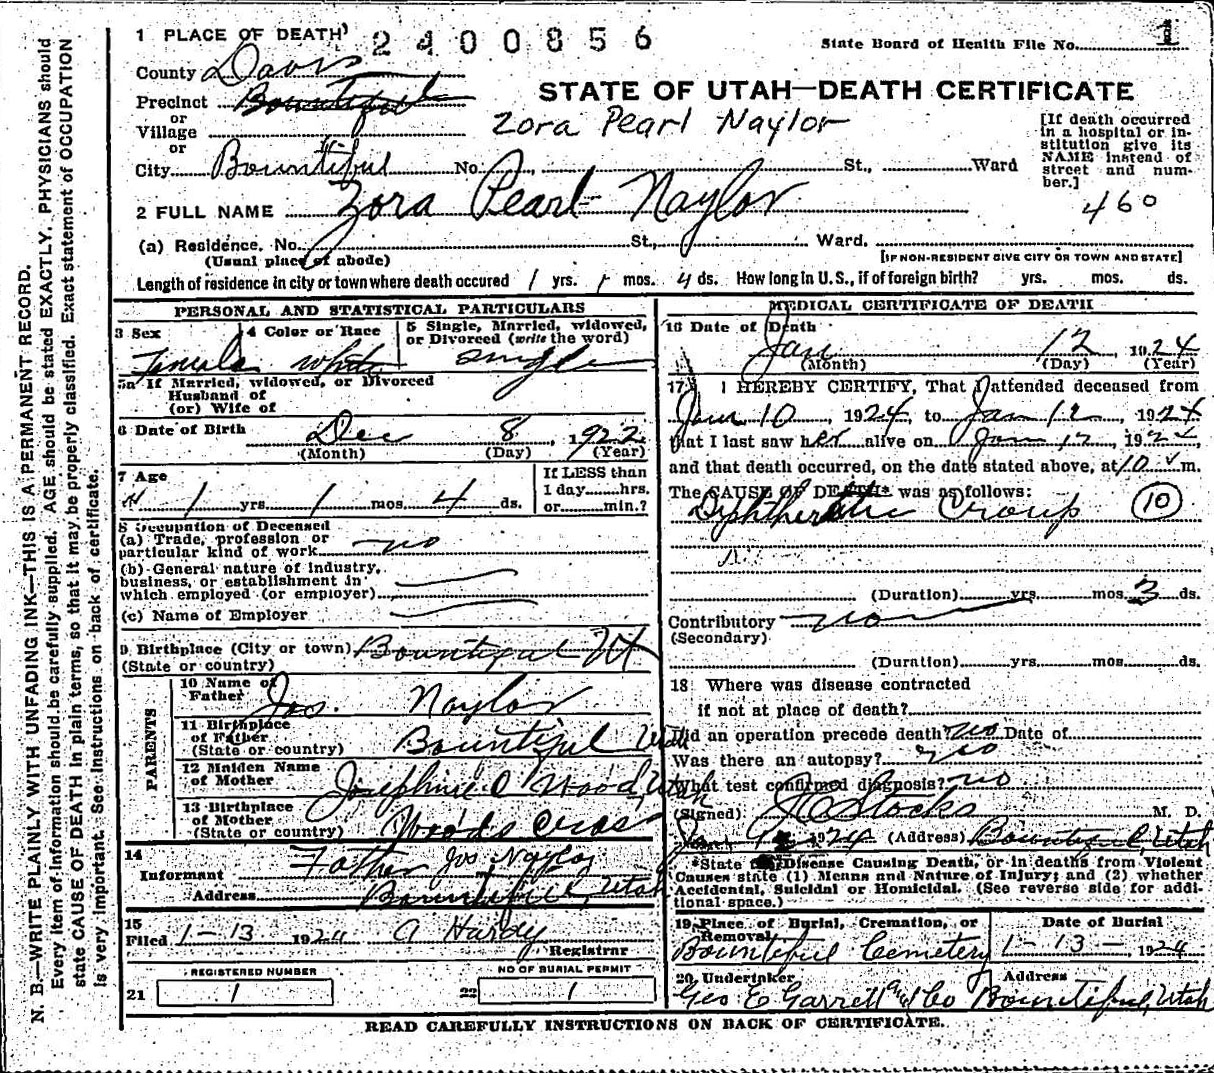 1 PLACE OF DEATH 2400856 State Board of Health File No. 1
County Davis
STATE OF UTAH—DEATH CERTIFICATE
Precinct Bountiful
or
Village
or
Zora Pearl Naylor
[If death occurred in a hospital or in-
stitution give its NAME instead of street and num-
ber.]
460
City Bountiful No. St., Ward
2 FULL NAME Zora Pearl Naylor
(a) Residence. No. St., Ward.
(Usual place of abode) [IF NON-RESIDENT GIVE CITY OR TOWN AND STATE]
Length of residence in city or town where death occured 1 yrs. 1 mos. 4 ds. How long in U.S., if of foreign birth? yrs. mos. ds.
PERSONAL AND STATISTICAL PARTICULARS
3 Sex 4 Color or Race 5 Single, Married, widowed,
or Divorced (write the word)
Female White Single
5a If Married, widowed, or Divorced
Husband of
(or) Wife of
6 Date of Birth Dec 8, 1922
(Month) (Day) (Year)
7 Age If LESS than
1 day hrs.
1 yrs. 1 mos. 4 ds. or min.?
8 Occupation of Deceased
(a) Trade, profession or
particular kind of work no
(b) General nature of industry,
business, or establishment in
which employed (or employer)
(c) Name of Employer
9 Birthplace (City or town) Bountiful Ut
(State or country)
PARENTS
10 Name of
Father Jos. Naylor
11 Birthplace
of Father
(State or country) Bountiful Utah
12 Maiden Name
of Mother Josephine C Wood
13 Birthplace
of Mother
(State or country) Woods Cross Utah
14
Informant Father Jos Naylor
Address Bountiful, Utah
15
Filed 1-13 1924 A Hardy
Registrar
REGISTERED NUMBER NO OF BURIAL PERMIT
21 1 22 1
MEDICAL CERTIFICATE OF DEATH
16 Date of Death
Jan 12, 1924
(Month) (Day) (Year)
17 I HEREBY CERTIFY, That I attended deceased from
Jan 10, 1924 to Jan 12, 1924
that I last saw her alive on Jan 12, 1924,
and that death occurred, on the date stated above, at 10 m.
The CAUSE OF DEATH* was as follows:
Diphtheritic Croup 10
(Duration) yrs. mos. 3 ds.
Contributory non
(Secondary)
(Duration) yrs. mos. ds.
18 Where was disease contracted
if not at place of death?
Did an operation precede death? no Date of
Was there an autopsy? no
What test confirmed diagnosis? no
(Signed) Stocks M. D.
1924 (Address) Bountiful, Utah
*State the Disease Causing Death, or in deaths from Violent
Causes state (1) Means and Nature of Injury; and (2) whether
Accidental, Suicidal or Homicidal. (See reverse side for addi-
tional space.)
19 Place of Burial, Cremation, or
Removal Date of Burial
Bountiful Cemetery 1-13- 1924
20 Undertaker Address
Geo E Garrett and Co Bountiful, Utah
READ CAREFULLY INSTRUCTIONS ON BACK OF CERTIFICATE.
N. B.—WRITE PLAINLY WITH UNFADING INK—THIS IS A PERMANENT RECORD.
Every item of information should be carefully supplied. AGE should be stated EXACTLY. PHYSICIANS should
state CAUSE OF DEATH in plain terms, so that it may be properly classified. Exact statement of OCCUPATION
is very important. See instructions on back of certificate.